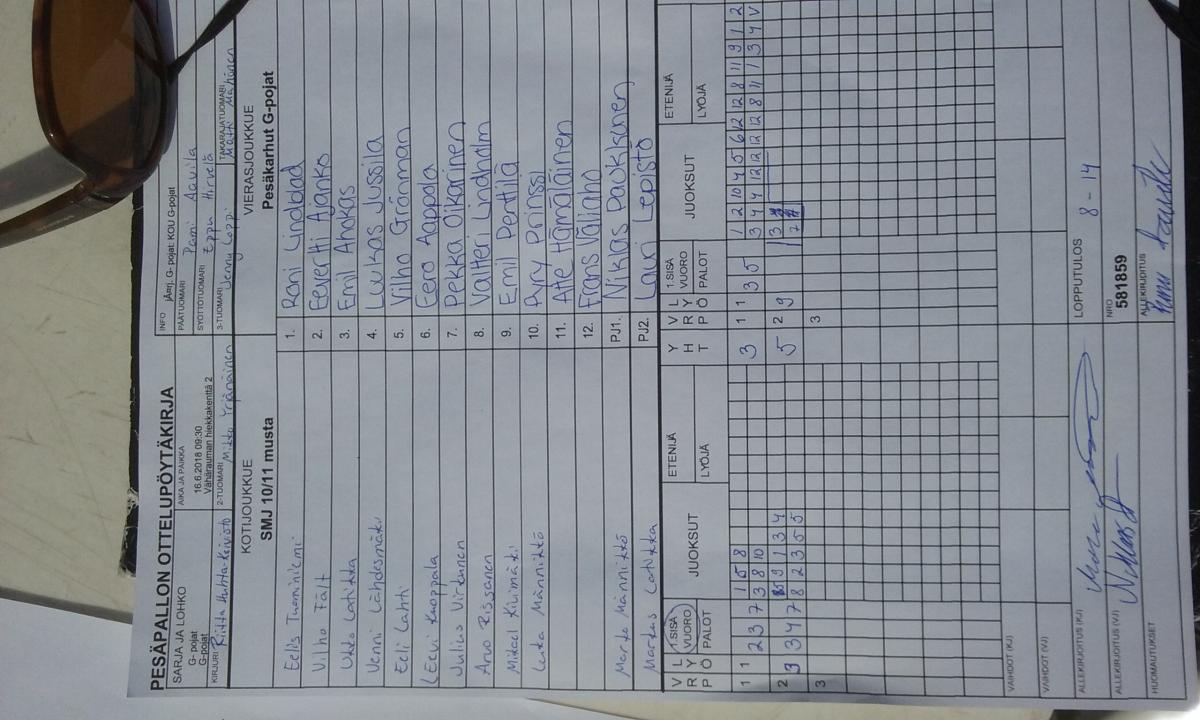 PESÄPALLON OTTELUPÖYTÄKIRJA
SARJA JA LOHKO
G- pojat
G-pojat
AIKA JA PAIKKA
16.6.2018 09:30
Vähärauman hiekkakenttä 2
INFO jÄrrj. G- pojat: KOU G-pojat
PÄÄTUOMARI Pami Aavila
SYÖTTÖTUOMARI Eppu Hirvelä
KIRJURI Riitta Huhta-Koivisto
2-TUOMARI Mikko Yrjänäinen
3-TUOMARI Jenny Loppi
TAKARAJATUOMARI Matti Mähönen
KOTIJOUKKUE
SMJ 10/11 musta
VIERASJOUKKUE
Pesäkarhut G-pojat
Eelis Tuominiemi 1. Roni Lindblad
Vilho Fält 2. Eevertti Ajanko
Ukko Latikka 3. Emil Ahokas
Venni Lähdesmäki 4. Luukas Jussila
Eeli Lahti 5. Vilho Grönman
Leevi Kuoppala 6. Eero Aappola
Julius Virtanen 7. Pekka Oikarinen
Arvo Rissanen 8. Valtteri Lindholm
Mikael Kivimäki 9. Emil Penttilä
Luka Männikkö 10. Pyry Prinssi
11. Atte Hämäläinen
12. Frans Väliaho
Marko Männikkö PJ1. Niklas Paukkunen
Markus Latikka PJ2. Lauri Lepistö
V R P L Y Ö 1.SISÄ VUORO PALOT JUOKSUT ETENIJÄ LYÖJÄ Y H T V R P L Y Ö 1.SISÄ VUORO PALOT JUOKSUT ETENIJÄ LYÖJÄ
1 1 2 3 7 1 5 8 3 1 1 3 5 1 2 10 4 5 6 12 12 8 11 9 1 2
3 8 10 3 4 4 12 12 12 12 8 11 1 3 4 V
2 3 3 4 7 9 1 3 4 5 2 9 1 3
8 2 3 5 5 7
3 3
VAIHDOT (KJ)
VAIHDOT (VJ)
ALLEKIRJOITUS (KJ)
LOPPUTULOS 8 - 14
ALLEKIRJOITUS (VJ)
NRO 581859
HUOMAUTUKSET
ALLEKIRJOITUS